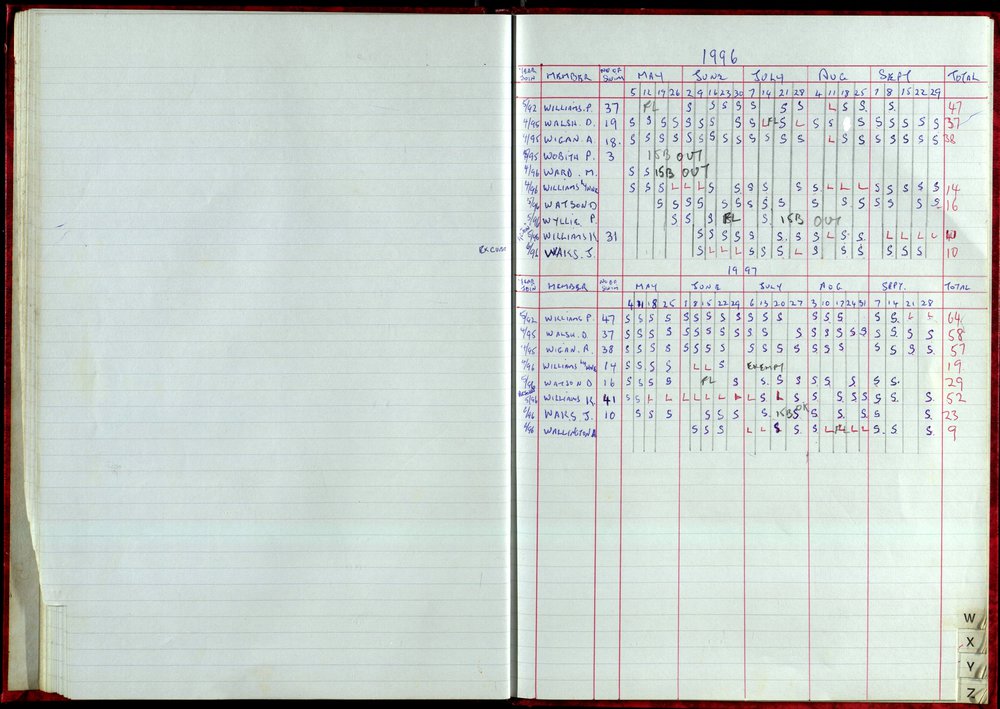 1996
YEAR JOIN MEMBER NO OF SWIM MAY JUNE JULY AUG SEPT TOTAL
5 12 19 26 2 9 16 23 30 7 14 21 28 4 11 18 25 1 8 15 22 29
5/92 WILLIAMS.P. 37 FL S S S S S S S L S S S 47
4/95 WALSH. D. 19 S S S S S S S S S S L FL S L S S S S S S S S S 37
4/95 WIGAN. A. 18. S S S S S S S S S S S S S L S S S S S S S 38
WOBITH P. 3 ISB OUT
4/96 WARD. M. S S ISB OUT
4/96 WILLIAMS S S S L L L S S S S S S L L L S S S S S 14
5/96 WATSON D S S S S S S S S S S S S S S S 16
5/96 WYLLIE P. S S S FL S ISB OUT
WILLIAMS K 31 S S S S S S S S L S S L L L L 41
EXCUM 6/96 WAKS. J. S L L L S S S L S S S S S S 10
1997
YEAR JOIN MEMBER NO OF SWIM MAY JUNE JULY AUG SEPT. TOTAL
4 11 18 25 1 8 15 22 29 6 13 20 27 3 10 17 24 31 7 14 21 28
5/92 WILLIAMS P. 47 S S S S S S S S S S S S S S S S S L S 64
4/95 WALSH. D. 37 S S S S S S S S S S S S S S S S S S S S S 58
4/95 WIGAN. A. 38 S S S S S S S S S S S S S S S S S S S 57
4/96 WILLIAMS 14 S S S S L L S EXEMPT 19.
5/96 WATSON D 16 S S S S FL S S S S S S S S S S 29
WILLIAMS K. 41 S S L L L L L L L L S L S S S S S S S S 52
6/96 WAKS J. 10 S S S S S S S ISB OK S S S S S S S 23
4/96 WALLINGTON A S S S L L S S S L FL L L S S S 9
W
X
Y
Z